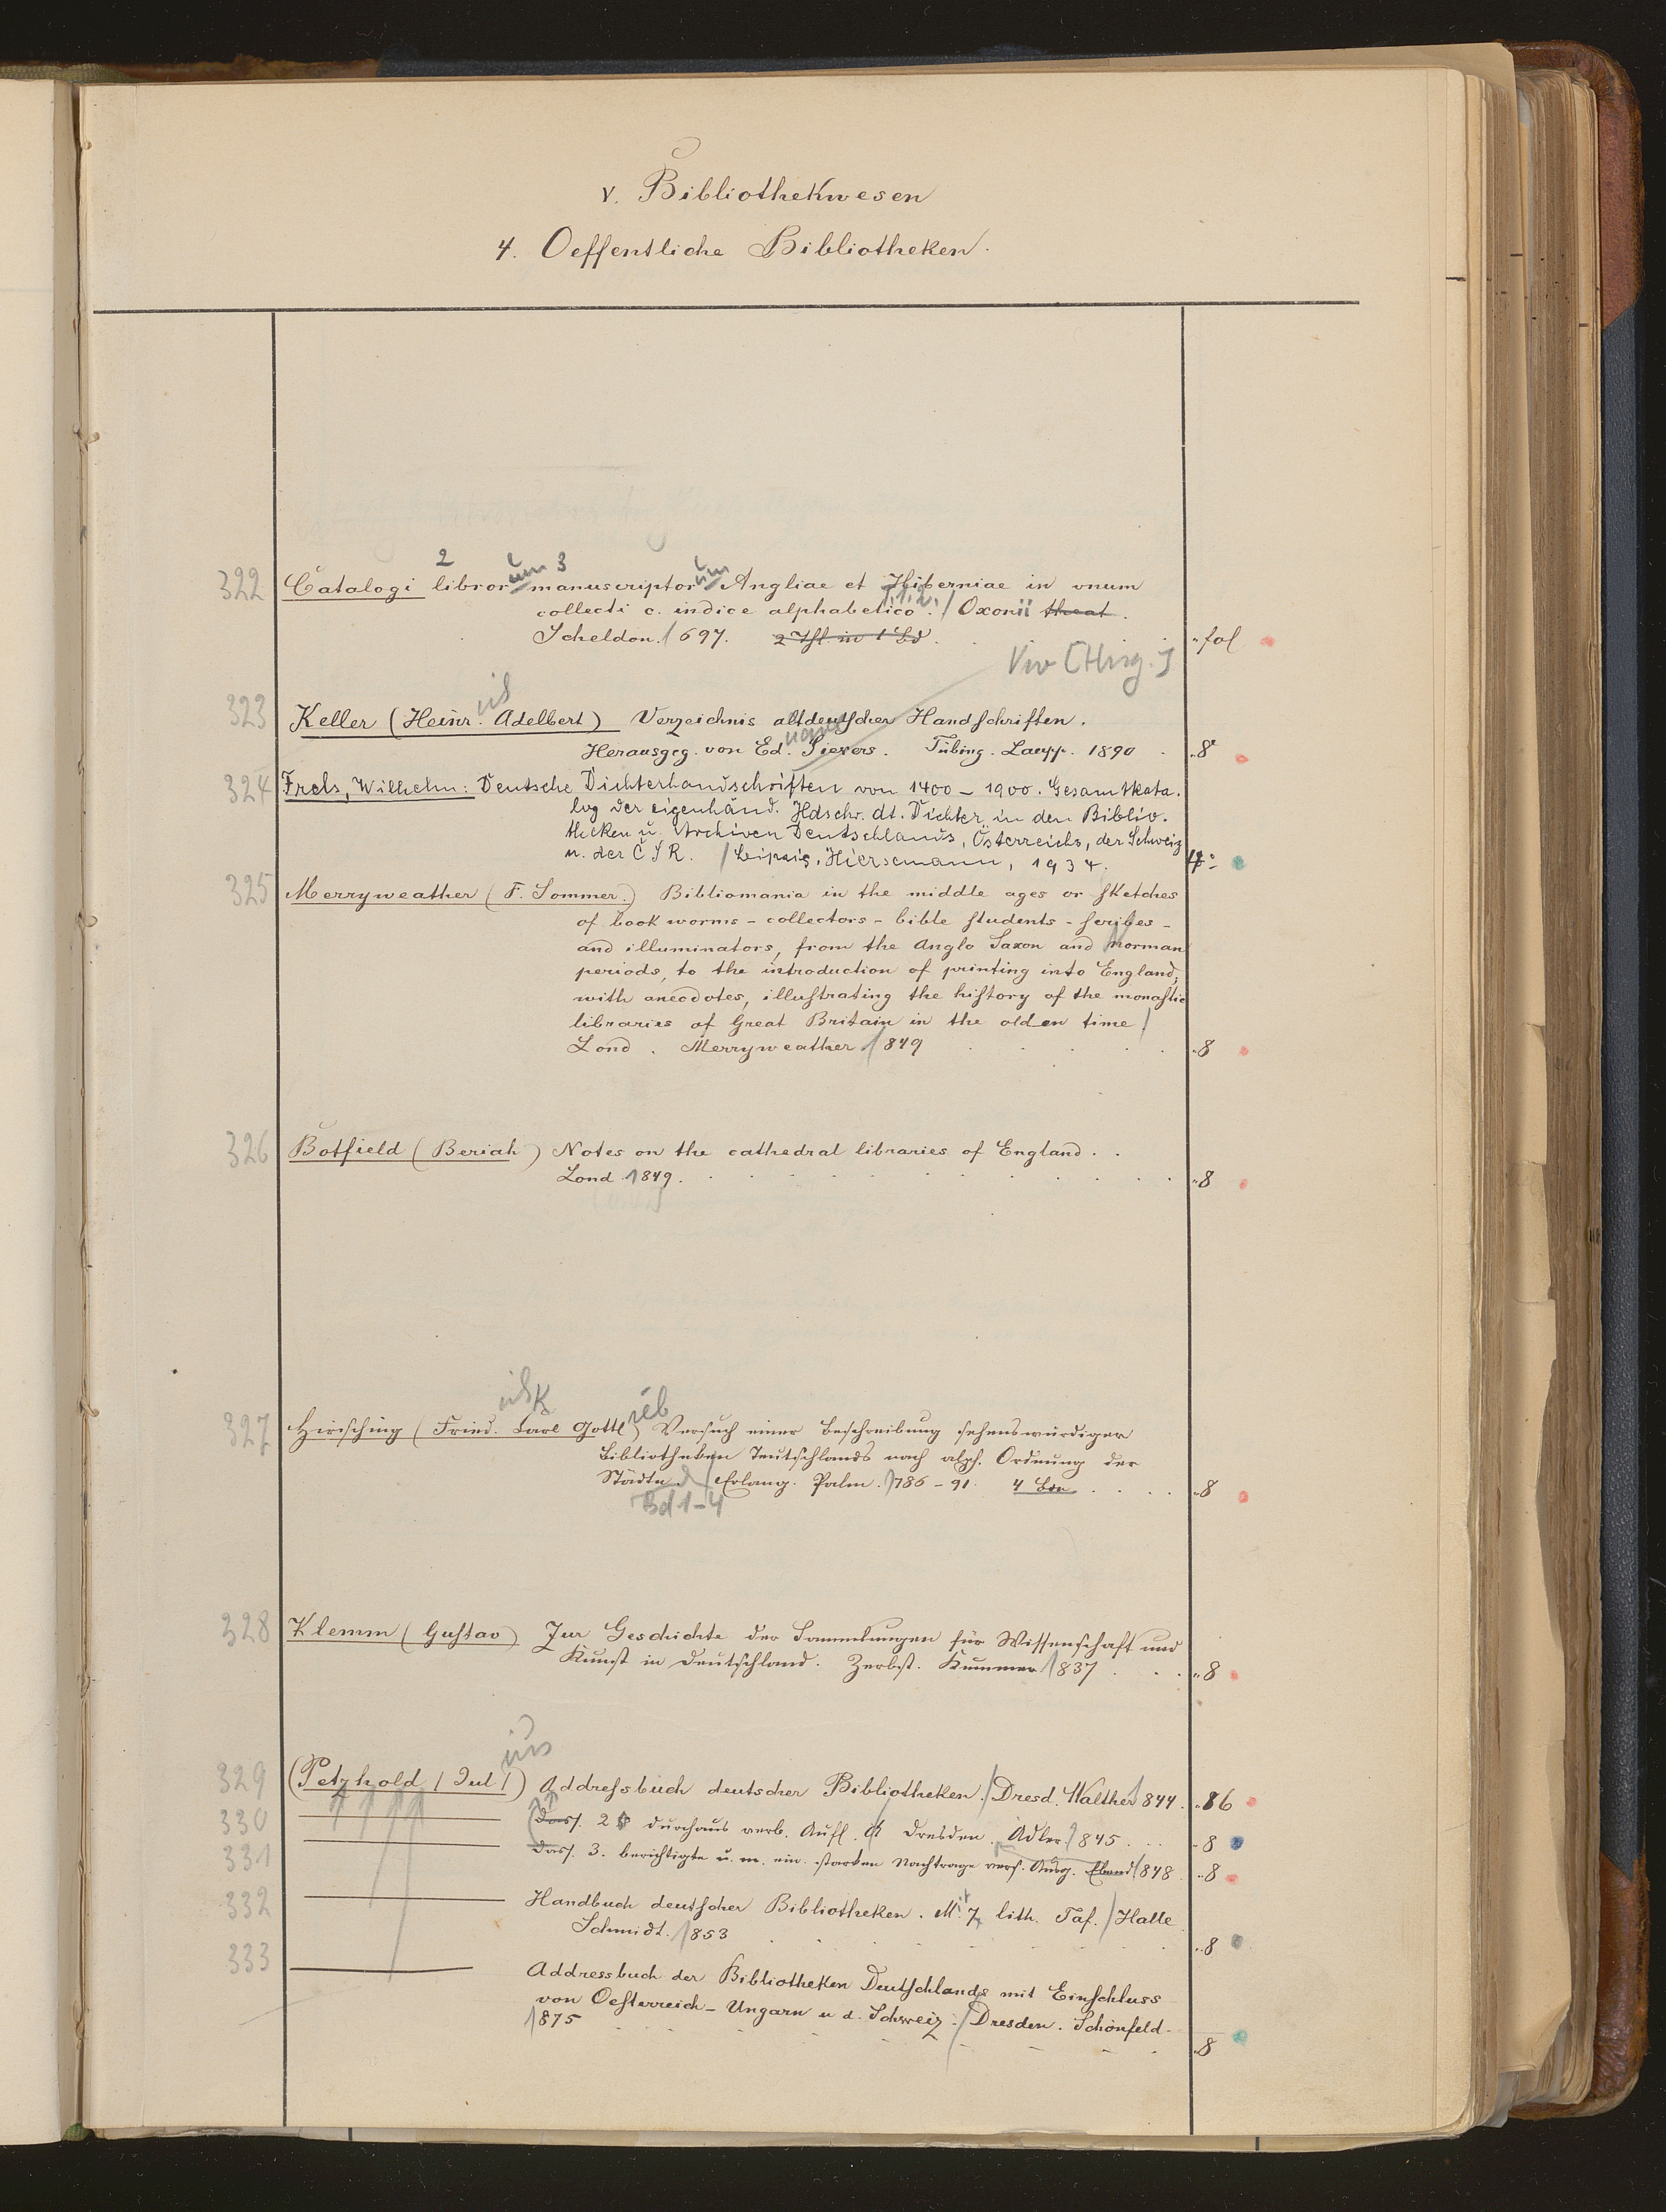 V. Bibliothekwesen
4. Oeffentliche Bibliotheken.
2 um 3 um
322 Catalogi libror manuscriptor Angliae et Hiberniae in unum
collecti c. indice alphabetico. 1.2. / Oxonii theat.
Scheldon. 1697. 2 Thl. in 1 Bd. fol
[Hrsg.]
323 Keller (Heinr. Adelbert) Verzeichnis altdeutscher Handschriften.
Herausgeg. von Ed. Sievers. Tübing. Laupp. 1890 8°
324 Frels, Wilhelm: Deutsche Dichterhandschriften von 1400 – 1900. Gesamtkata-
log der eigenhänd. Hdschr. dt. Dichter in den Biblio-
theken u. Archiven Deutschlands, Österreichs, der Schweiz
u. der ČSR. / Leipzig, Hiersemann, 1934. 4°
325 Merryweather (F. Sommer.) Bibliomania in the middle ages or sketches
of book worms – collectors – bible students – scribes –
and illuminators, from the Anglo Saxon and Norman
periods, to the introduction of printing into England;
with anecdotes, illustrating the history of the monastic
libraries of Great Britain in the olden time /
Lond. Merryweather 1849 8
326 Botfield (Beriah) Notes on the cathedral libraries of England . .
Lond. 1849. 8
327 Hirsching (Fried. Carl Gottl) Versuch einer Beschreibung sehenswürdiger
Bibliotheken Teutschlands nach alph. Ordnung der
Städte / Erlang. Palm. 1786 – 91. 4 Bde 8
Bd 1–4
328 Klemm (Gustav) Zur Geschichte der Sammlungen für Wissenschaft und
Kunst in Deutschland. Zerbst. Kummer 1837 8
ius
329 (Petzhold / Jul /) Addressbuch deutscher Bibliotheken. / Dresd. Walther 1844. 8
330 Dass. 2 durchaus verb. Aufl. Dresden. Adler. 1845 . . . 8
331 Dass. 3. berichtigte u. m. ein. starken Nachtrage vers. Ausg. Ebend 1848. 8
332 Handbuch deutscher Bibliotheken. Mit 7 lith. Taf. / Halle
Schmidt. 1853 8
333 Addressbuch der Bibliotheken Deutschlands mit Einschluss
von Oesterreich – Ungarn u d. Schweiz. / Dresden. Schönfeld.
1875 8